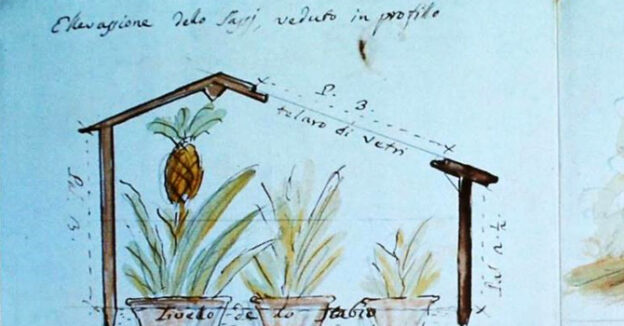 Ellevazione delo veduto in profillo
P. 3
telaro di vetri
Livelo de lo stabio